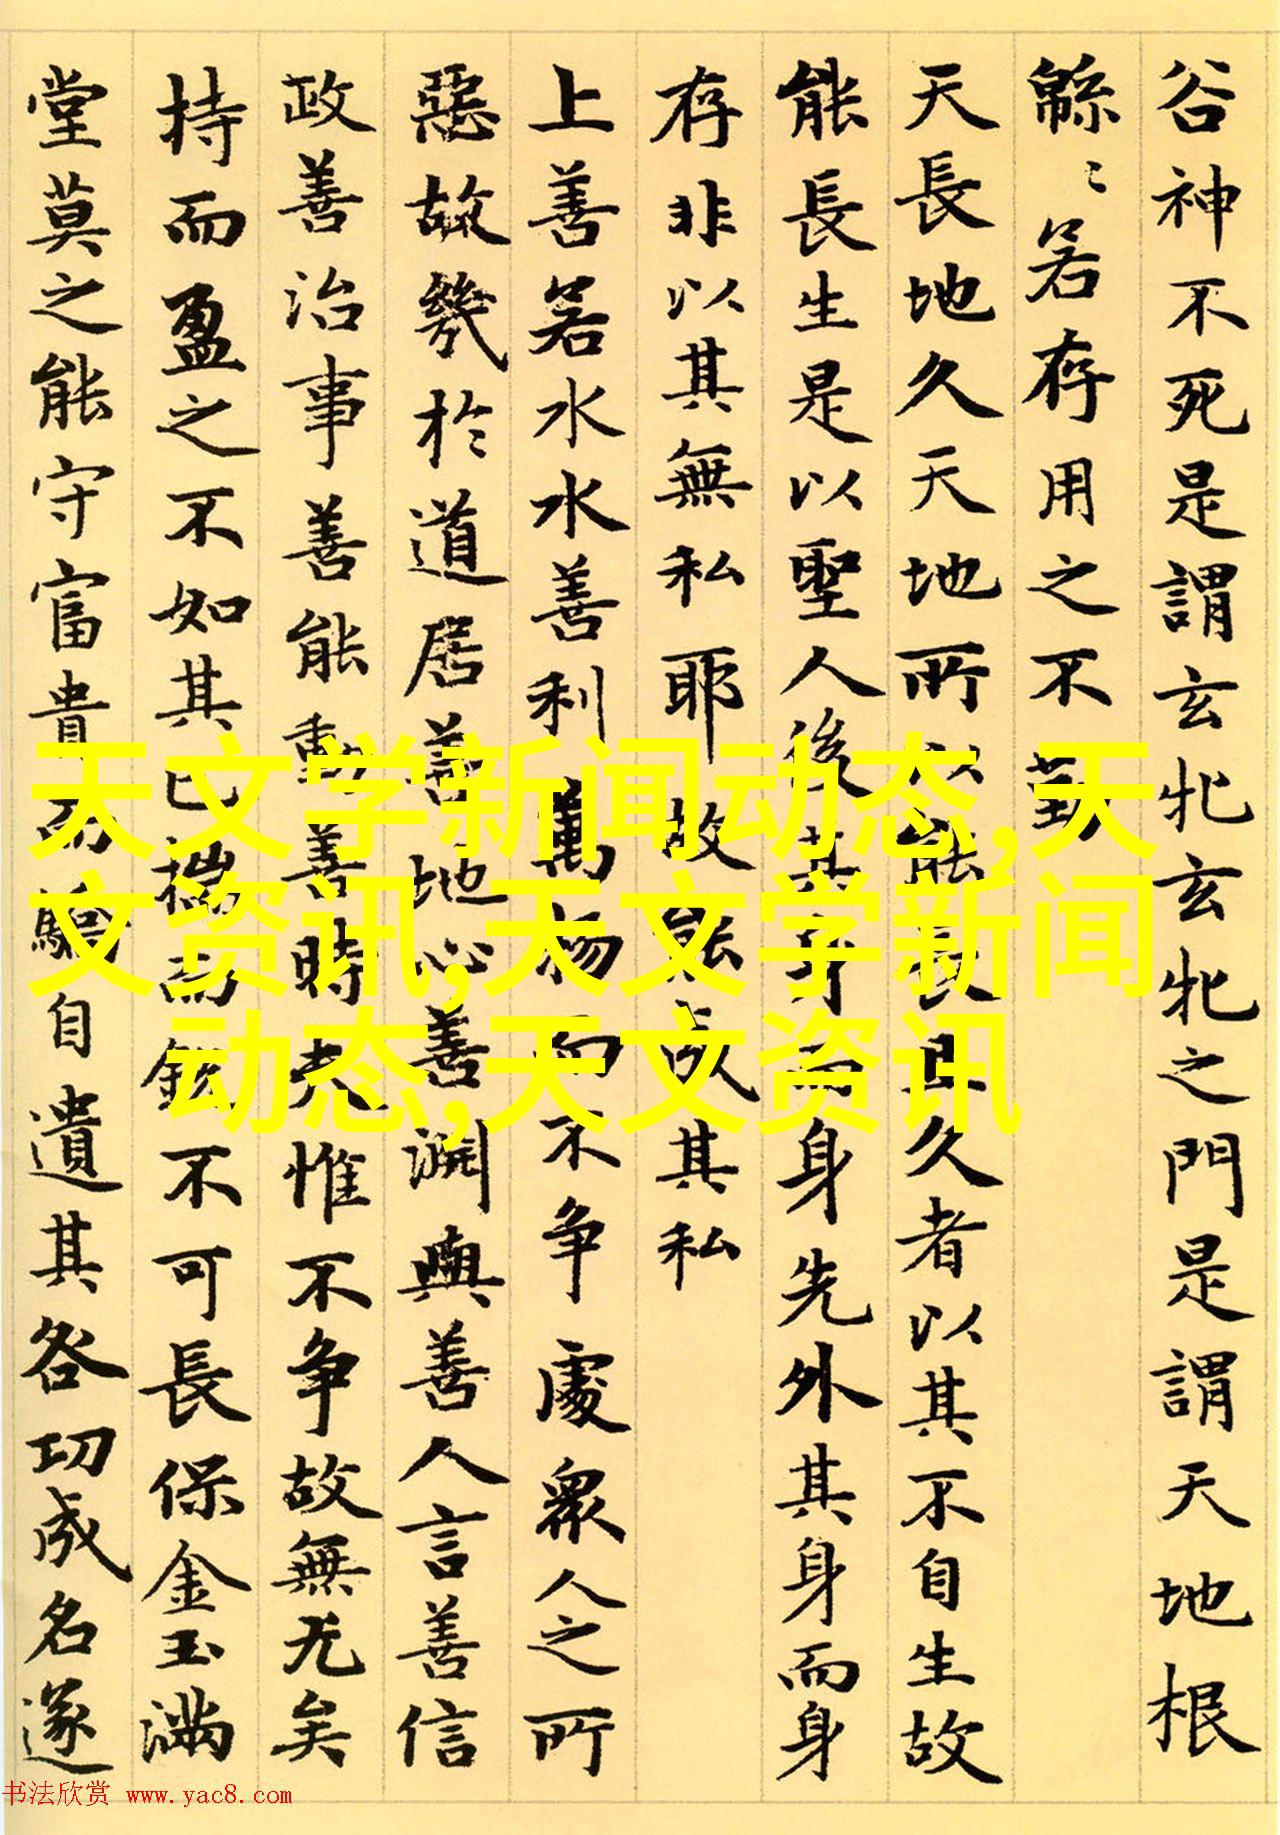 谷神不死是謂玄牝玄牝之門是謂天地根
緜〻若存用之不勤
天長地久天地所以能長且久者以其不自生故
能長生是以聖人後其身而身先外其身而身
存非以其無私耶故能成其私
上善若水水善利萬物而不争處衆人之所
惡故幾於道居善地心善淵與善人言善信
政善治事善能動善時夫惟不争故無尤矣
持而盈之不如其已揣而銳不可長保金玉滿
堂莫之能守富貴而驕自遺其咎功成名遂
天文学新闻动态,天
文资讯,天文学新闻
动态,天文资讯
书法欣赏 www.yac8.com